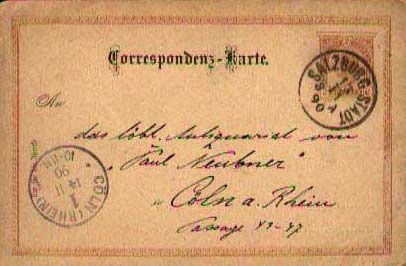 Correspondenz-Karte.
SALZBURG-STADT
An
das löbl. Antiquariat von
"Paul Neubner"
in Cöln a. Rhein
Passage
CÖLN (RHEIN)
1
14 11
90